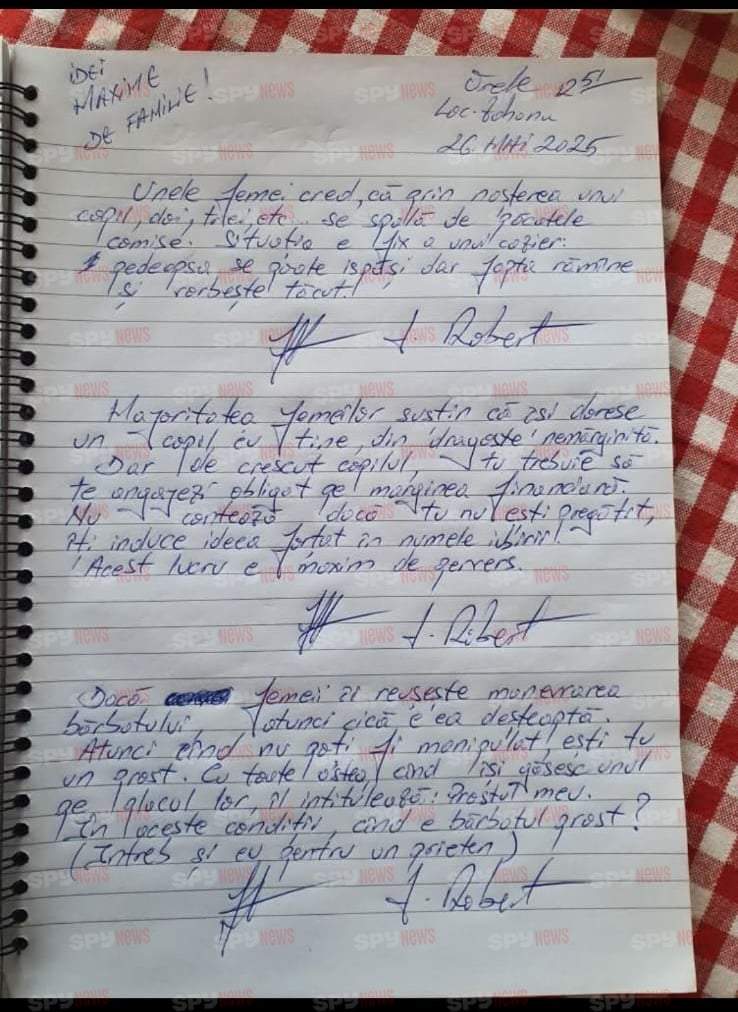 IDEI
MAXIME
DE FAMILIE!
Orele 2 51
Loc.
26 MAI 2025
Unele femei cred, că prin nașterea unui
copil, doi, trei, etc... se spălă de păcatele
comise. Situația e fix a unui cazier:
pedeapsa se poate ispăși dar fapta rămîne
și vorbește tăcut!
J. Robert
Majoritatea femeilor susțin că își doresc
un copil cu tine, din dragoste nemărginită.
Dar de crescut copilul, tu trebuie să
te angajezi obligat pe marginea financiară.
Nu contează dacă tu nu ești pregătit,
îți induce ideea forțat în numele iubirii!
Acest lucru e maxim de pervers.
J. Robert
Dacă femeii îi reușește manevrarea
bărbatului, atunci cică e ea deșteaptă.
Atunci cînd nu poți fi manipulat, ești tu
un prost. Cu toate astea, cînd își găsesc unul
pe placul lor, îl intitulează: Prostul meu.
În aceste condiții, cînd e bărbatul prost?
(Întreb și eu pentru un prieten)
J. Robert
SPYNEWS